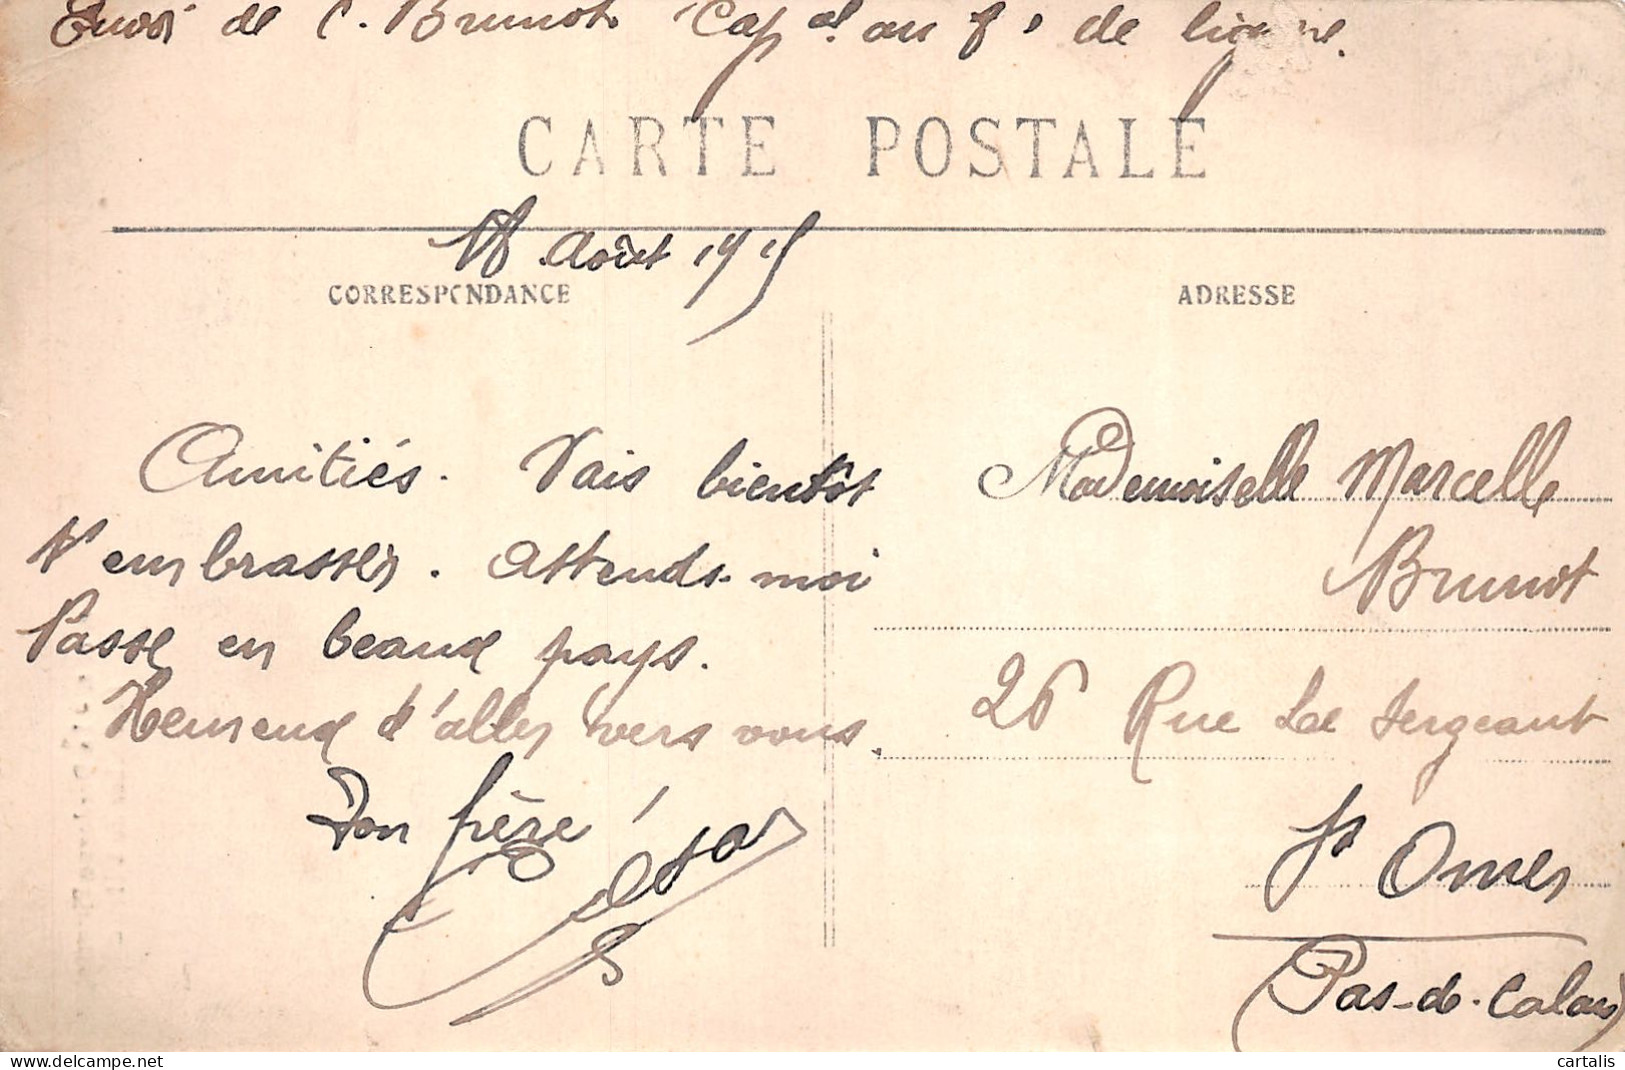 Envoi de C. Brunot Cap al au 8e de ligne.
CARTE POSTALE
18 Août 1915
CORRESPONDANCE
ADRESSE
Amitiés. Vais bientôt
t'embrasser. Attends-moi
Passe en beaux pays.
Heureux d'aller vers vous
Ton frère!
Mademoiselle Marcelle
Brunot
26 Rue Le Sergeant
St Omer
(Pas-de-Calais)
cartalis